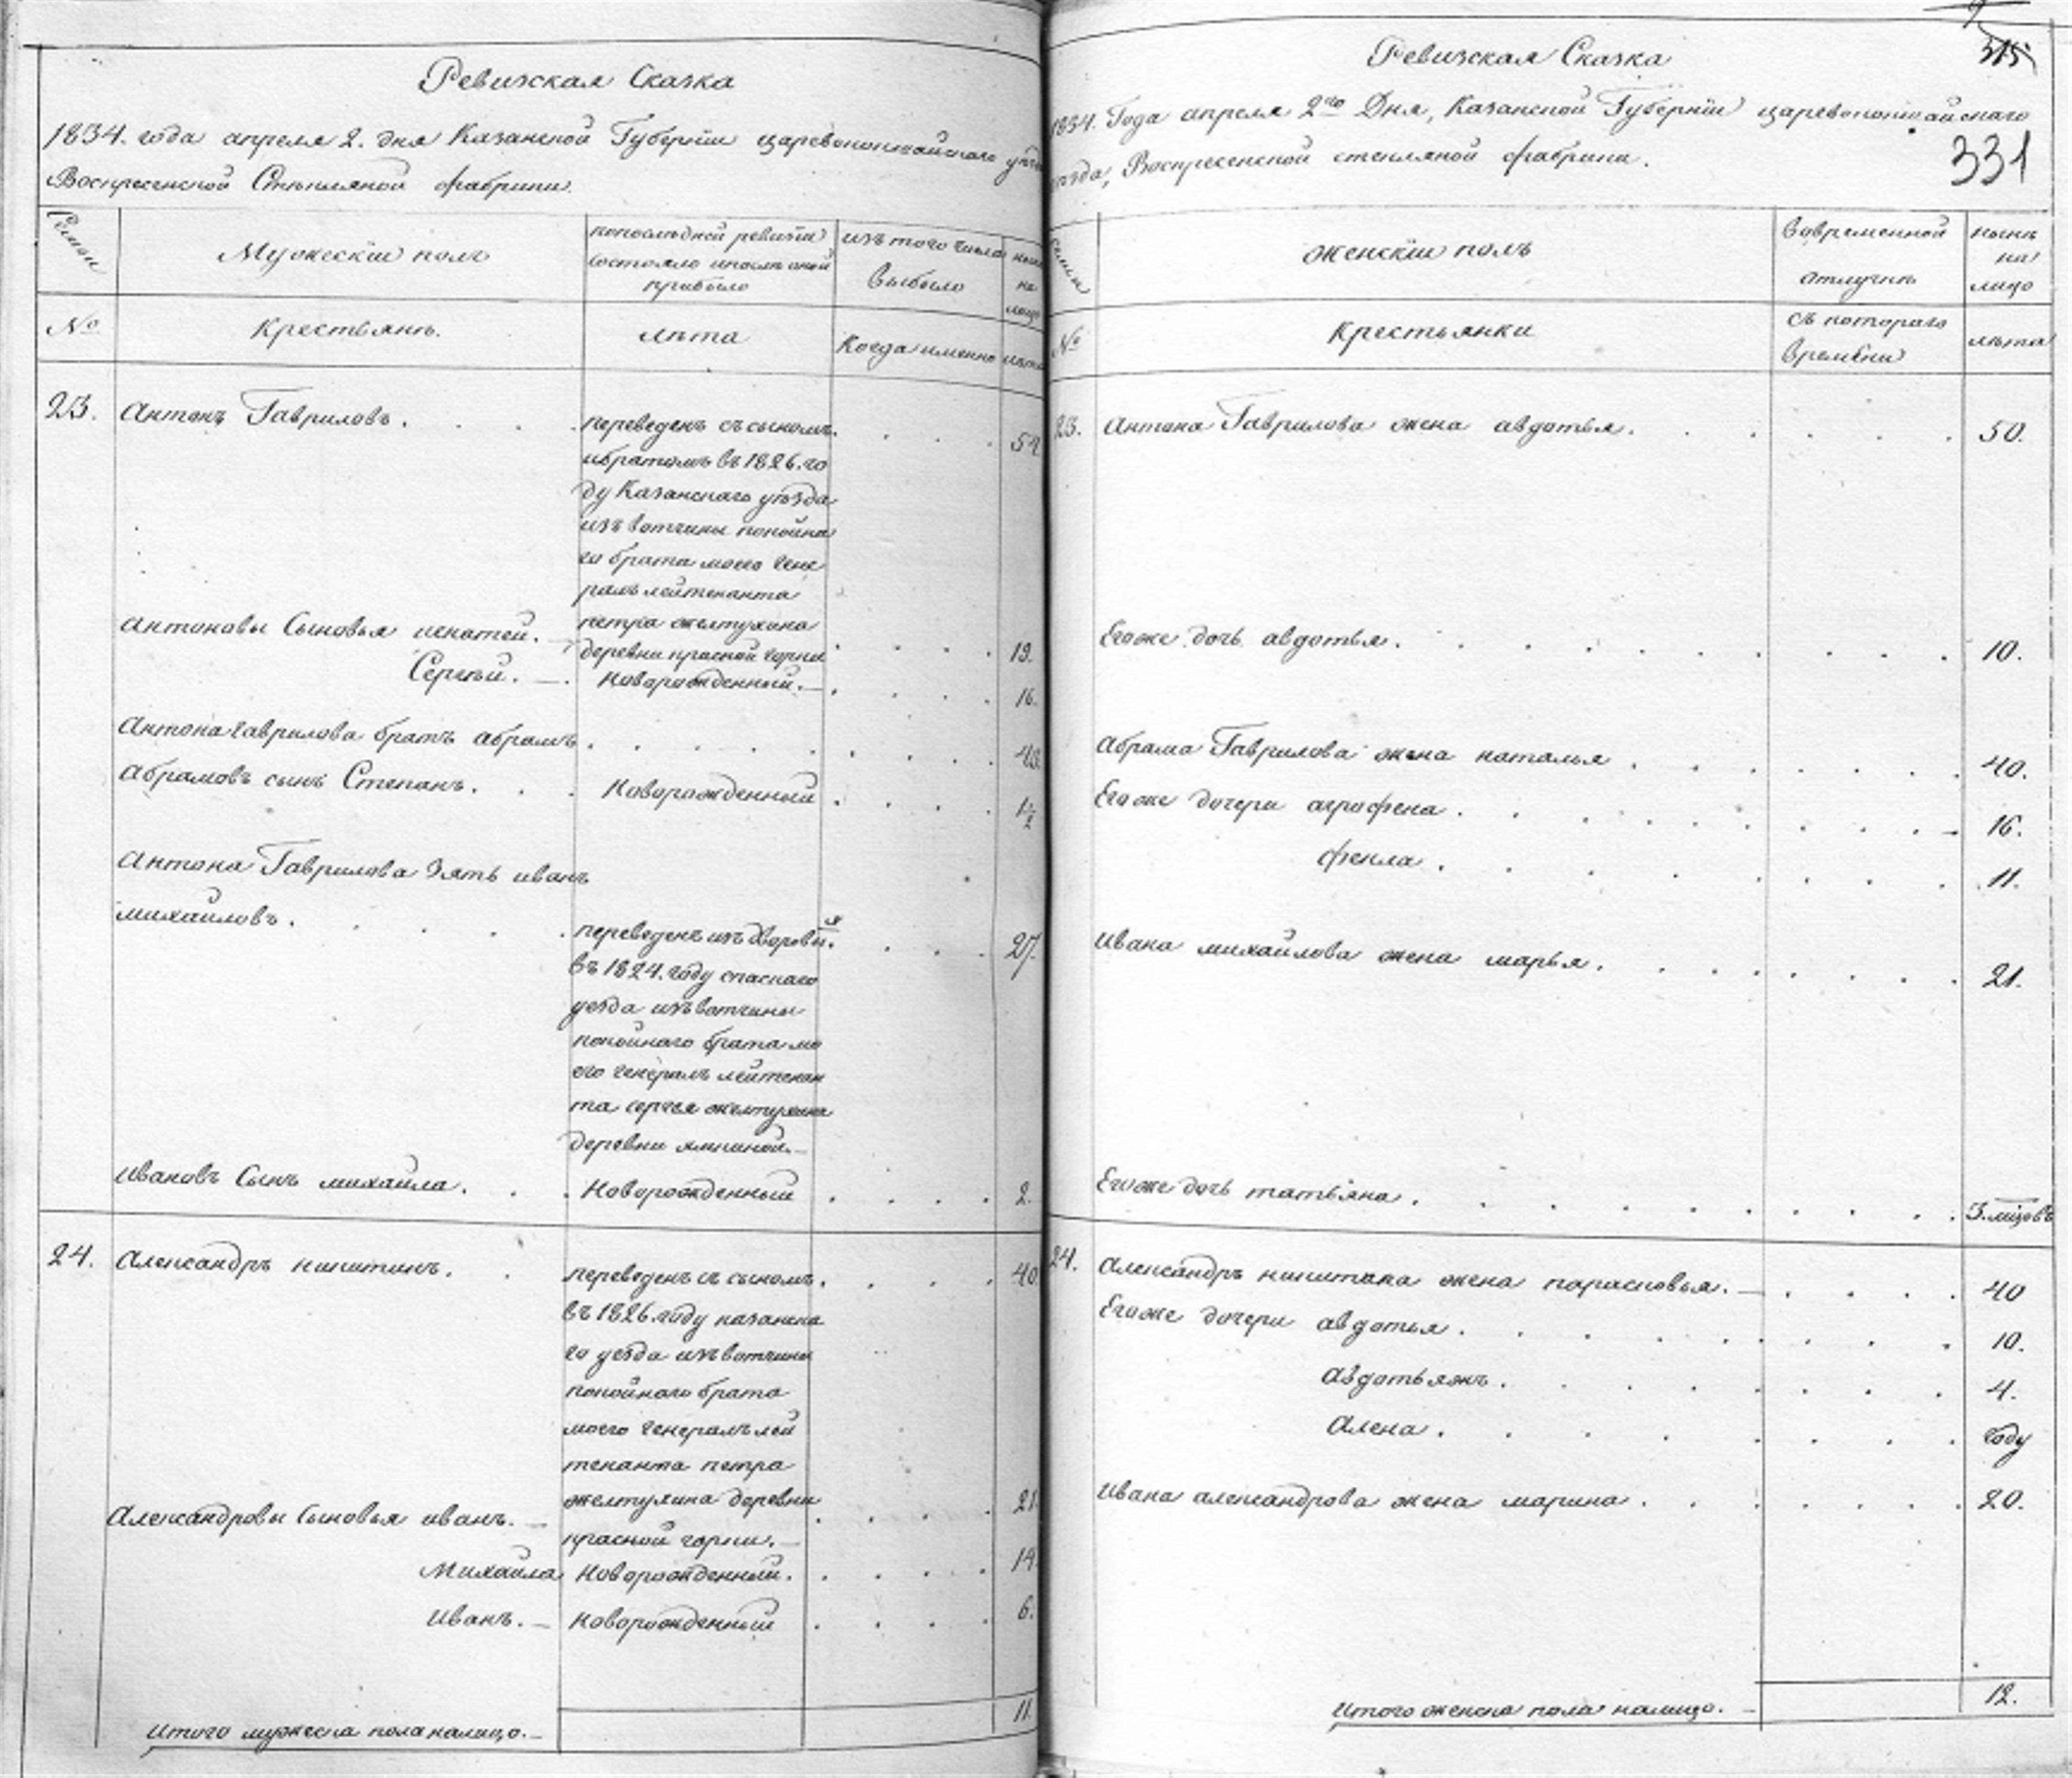 Ревизская Сказка
1834. года апреля 2. дня Казанской Губернїи царевококшайскаго уѣзда
Воскресенской Стекляной фабрики.
Семьи
Мужескїй полъ
попослѣдней ревизїи
состояло и послѣ оной
прибыло
изъ того числа
выбыло
ныне
на
лицо
№
Крестьянъ.
лѣта
Когда именно
лѣта
23.
Антонъ Гавриловъ.
переведенъ съ сыномъ
ибратомъ въ 1826. го
ду Казанскаго уѣзда
изъ вотчины покойна
го брата моего гене
ралъ лейтенанта
петра желтухина
деревни красной горки
54
Антоновы Сыновья игнатей.
19.
Сергѣй.
Новорожденный.
16.
Антона гаврилова братъ абрамъ
43
абрамовъ сынъ Степанъ.
Новорожденный
1/2
Антона Гаврилова Зять иванъ
михайловъ.
переведенъ изъ дворовы.х
въ 1824. году спаскаго
уезда изъ вотчины
покойнаго брата мо
его генералъ лейтенан
та сергея желтухина
деревни ямкиной.
27.
Ивановъ Сынъ михайла.
Новорожденный
2.
24.
Александръ никитинъ.
переведенъ съ сыномъ.
въ 1826. году казанска
го уезда изъ вотчины
покойнаго брата
моего генералъ лей
тенанта петра
желтухина деревни
красной горки.
40
Александровы Сыновья иванъ.
21
Михайла
Новорожденный.
14
Иванъ.
Новорожденный
6.
Итого мужеска пола налицо.
11.
Ревизская Сказка
315
331
1834. Года апреля 2го Дня, Казанской Губернїи царевококшайскаго
уезда, Воскресенской стекляной фабрики.
Семьи
женскїй полъ
Вовременной
отлучкѣ
нынѣ
на
лицо
№
Крестьянки
съ котораго
времени
лѣта
23.
Антона Гаврилова жена авдотья.
50.
Егоже дочь авдотья.
10.
Абрама Гаврилова жена наталья
40.
Егоже дочери аграфена
16.
фекла
11.
Ивана михайлова жена марья.
21.
Егоже дочь татьяна.
3. мцовъ
24.
Александръ никитина жена парасковья.
40
Егоже дочери авдотья.
10.
авдотьяжъ.
4.
Алена.
году
Ивана александрова жена марина.
20.
Итого женска пола налицо.
12.